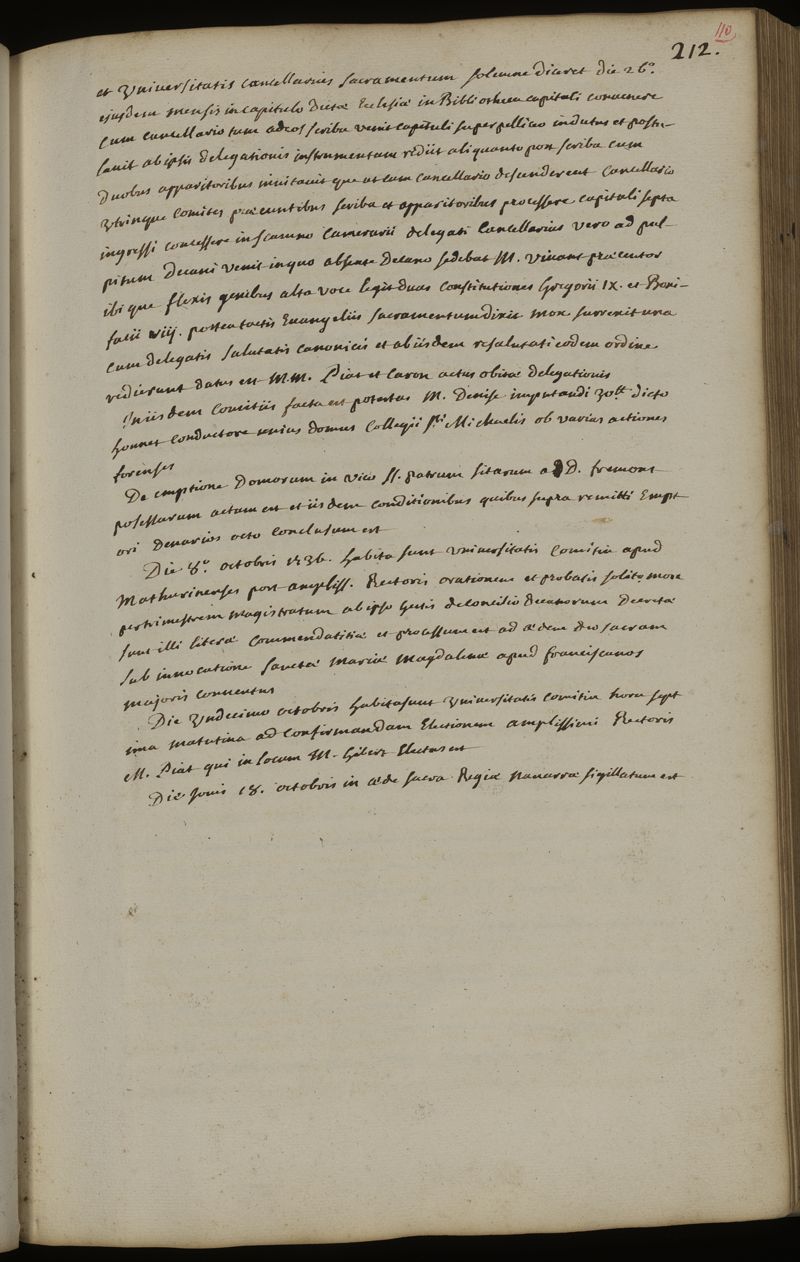 110
212.
et Universitatis cancellarius sacramentum solemne diceret die 26°.
ejusdem mensis in capitulo dictæ Ecclesiæ in Bibliotheca capituli convenere
cum cancellario tum ad eos scriba venit capituli superpelliceo indutus et postu-
lavit ab ipsis delegationis instrumentum rediit aliquanto post scriba cum
duobus apparitoribus invitavit que ut cum cancellario descenderent cancellario
utrinque comites præeuntibus scriba et apparitoribus processere capituli septa
ingressi concessere in scamno Camerarii delegati Cancellarius vero ad pul-
pitum Decani venit in quo absente Decano sedebat M. Vivant præcentor
ibi que flexis genibus alta voce legit duas constitutiones Gregorii IX. et Boni-
facii viij. postea tactis Evangeliis sacramentum dixit mox surrexit una
cum delegatis salutatis canonicis et ab iisdem resalutati eodem ordine
redierunt datus est M.M. Piat et Caron actus obitæ delegationis
In iisdem comitiis facta est potestas M. Denise imputandi 30tt dicto
honnet conductore unius domus Collegii Sti Michaelis ob varias actiones
forenses
De emptione Domorum in vico SS. patrum sitarum a D. fremont
possessarum actum est et iisdem conditionibus quibus supra remitti Empt
ori denarios octo conclusum est
Die 8.° octobris 1736. habita sunt Universitatis Comitia apud
Mathurinenses post ampliss. Rectoris orationem et probatis solito more
per trimestrem magistratum ab ipso gestis de concilio Decanorum Decretæ
sunt illi literæ commendatitiæ et processum est ad ædem deo sacram
sub invocatione sanctæ Mariæ Magdalenæ apud franciscanos
majoris conventus
Die Undecimo octobris habita sunt Universitatis comitia hora sept
ima matutina ad confirmandam Electionem amplissimi Rectoris
M. Piat qui in locum M. Gibert Electus est
Die Jovis 18. octobris in æde sacra Regiæ Navarræ sigillatum est